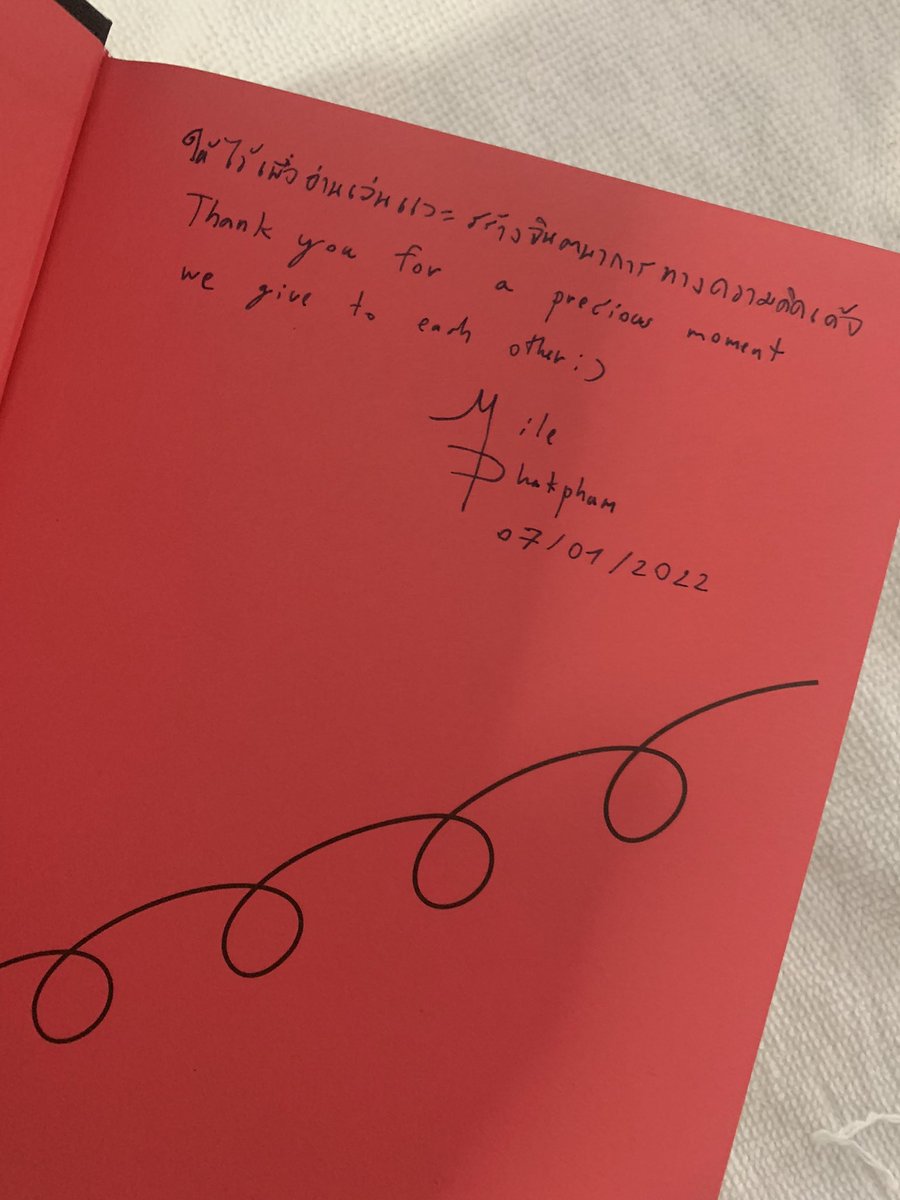 ให้ไว้เพื่ออ่านเล่นและสร้างจินตนาการทางความคิดเด้อ
Thank you for a precious moment
we give to each other :)
Mile
Phakphum
07/01/2022